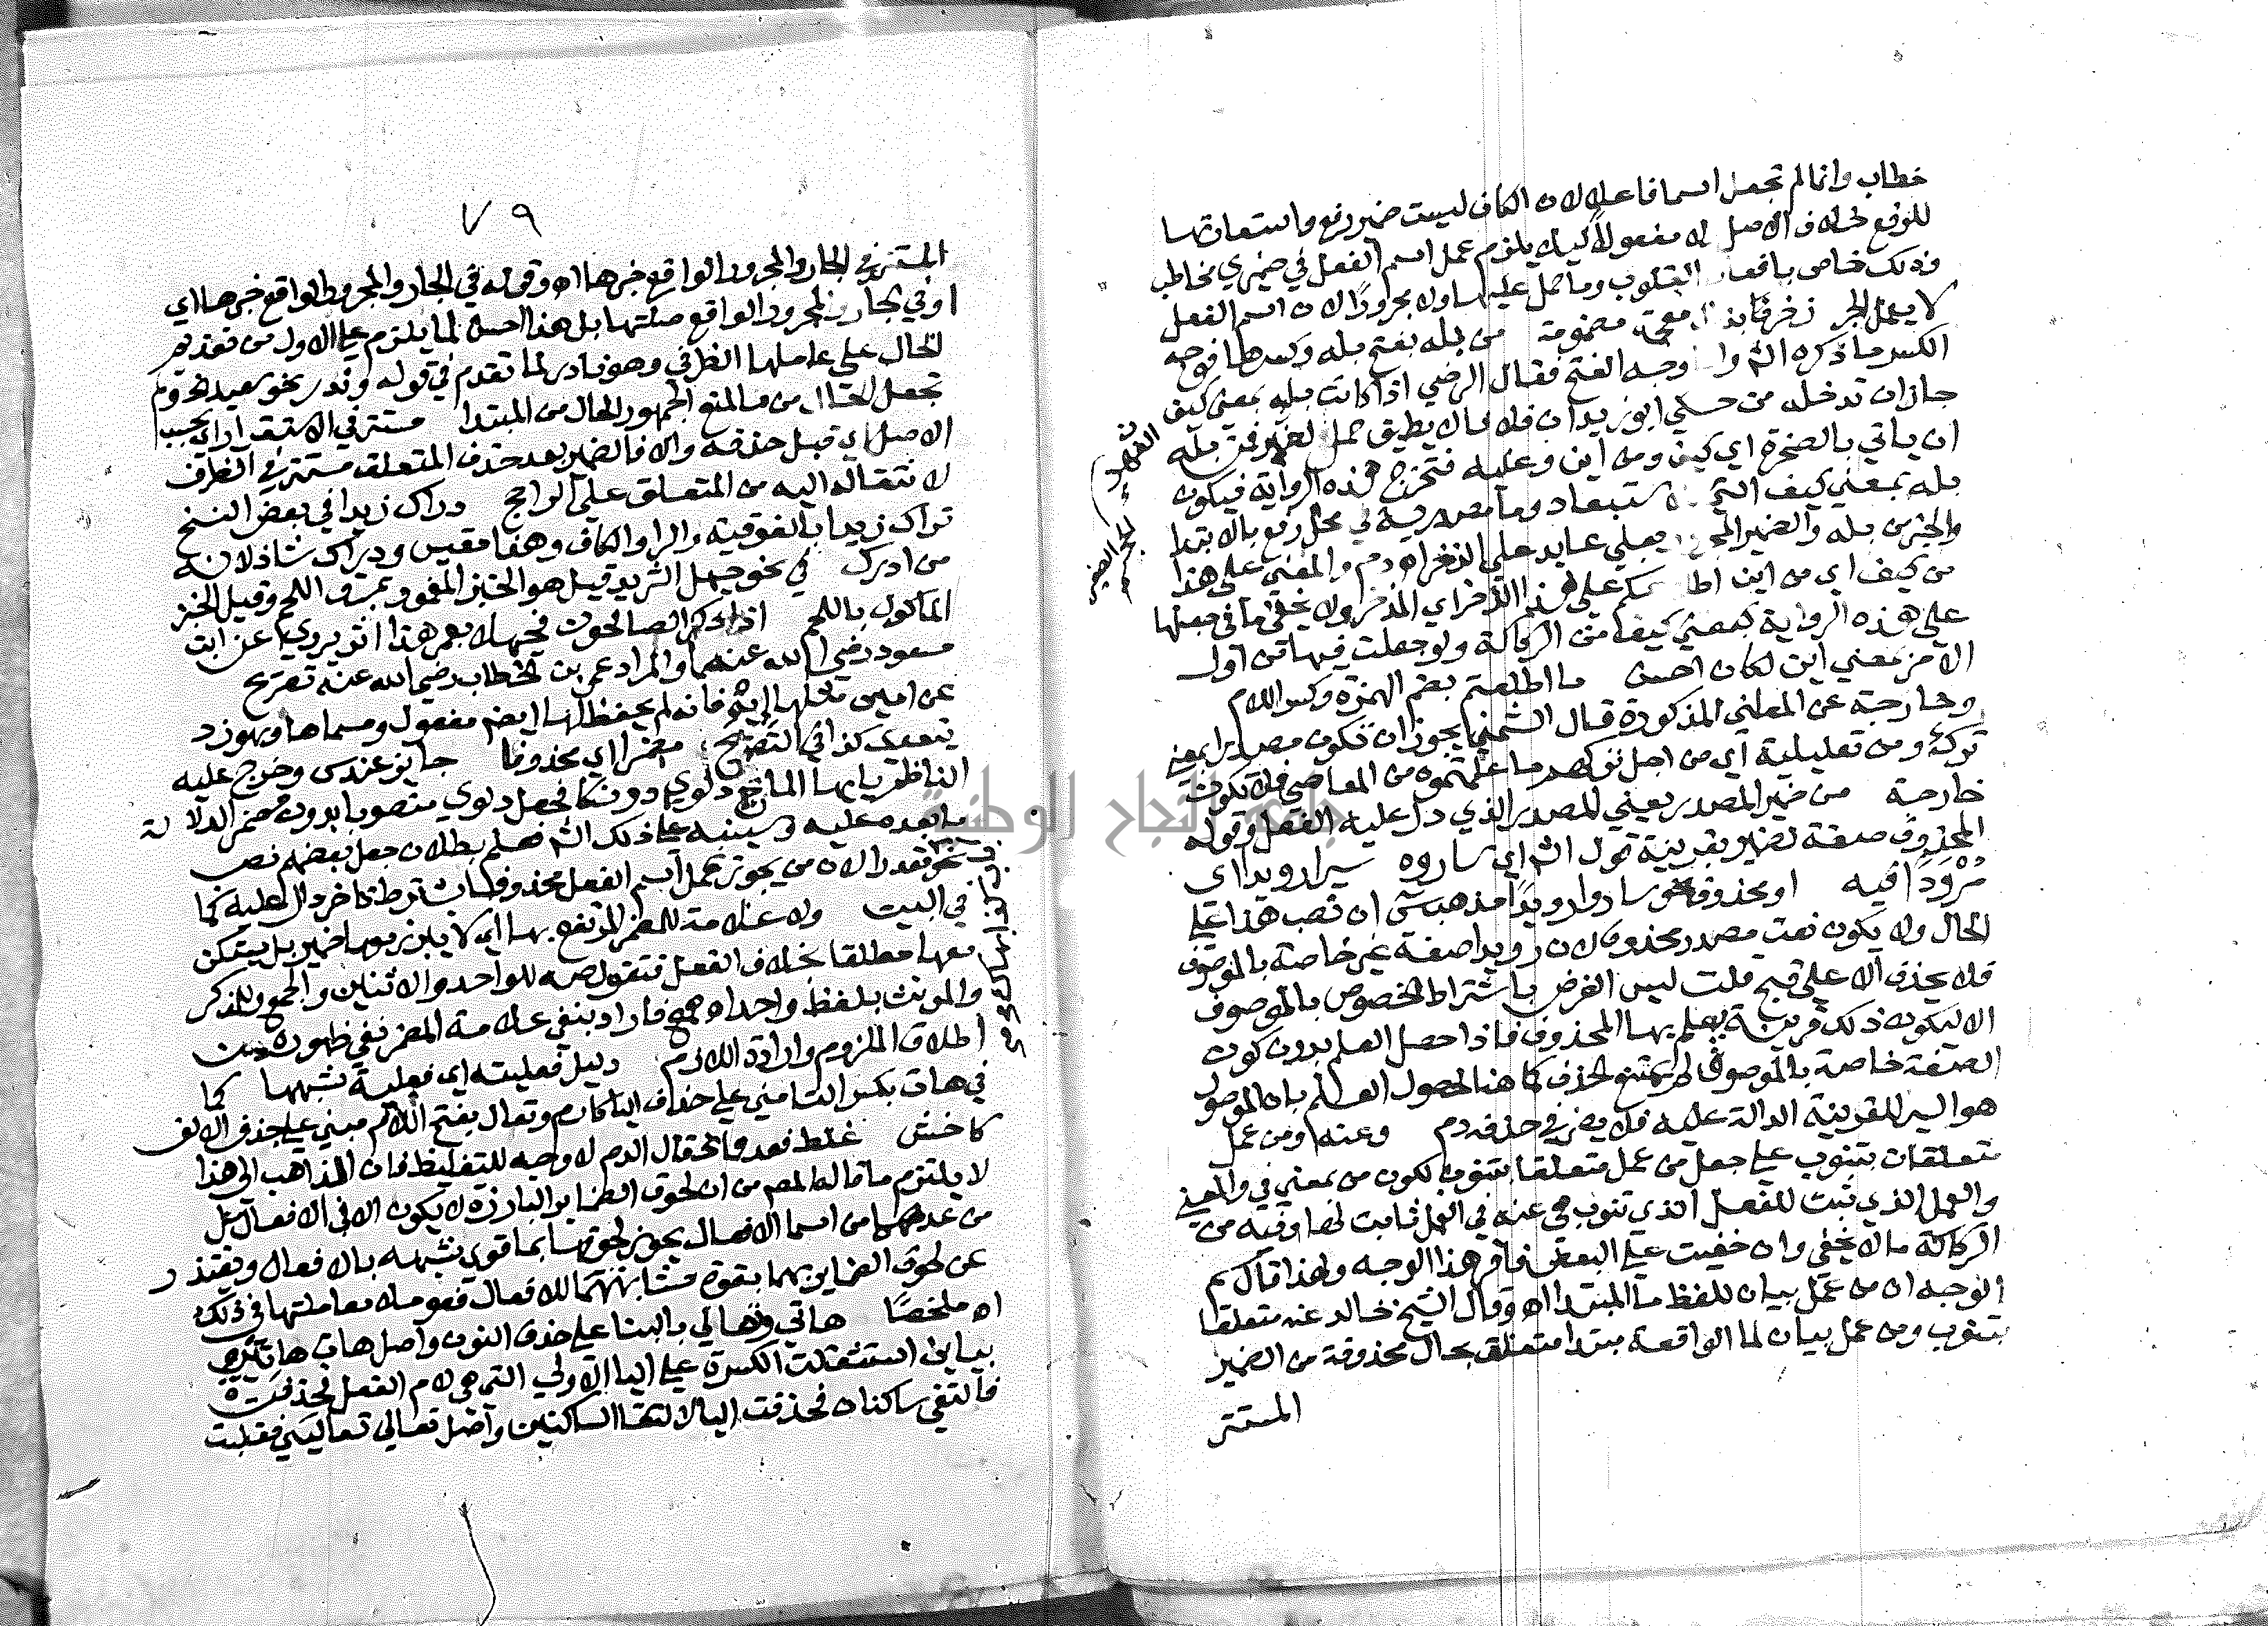 خطاب وانما لم تجعل اسما فاعلا لان الكاف ليست ضمير رفع واستعارتها
للرفع خلاف الاصل ولا مفعولا كيلا يلزم عمل اسم الفعل في ضميري مخاطب
وذلك خاص بافعال القلوب وما حمل عليها ولا مجرورا لان اسم الفعل
لا يعمل الجر معجمة مضمومة من بله بفتح بله وكسرها فوجه
الكسر ما ذكره الش وا وجه الفتح فقال الرضي اذا كانت بله بمعني كيف
جاز ان تدخله من حكي ابو زيد ان فلانا لا يطيق حمل الفهر فمن بله
ان ياتي بالصخرة اي كيف ومن اين وعليه فتخرج هذه الرواية فيكون
بله بمعني كيف التي للاستبعاد وما مصدرية في محل رفع بالابتدا
والخبر من بله والضمير المجرور بعلي عايد علي الذخر اه دم والمعني علي هذا
من كيف اي من اين اطلاعكم علي هذا الذخر اي المذخر ولا يخفي ما في جعلها
علي هذه الرواية بمعني كيف من الركاكة ولو جعلت فيها من اول
الامر بمعني اين لكان احسن ما اطلعتم بضم الهمزة وكسر اللام
وخارجة عن المعاني المذكورة قال الشمني يجوز ان تكون مصدرا بمعني
ترك ومن تعليلية اي من اجل تركهم ما علمتموه من المعاصي فلا تكون
خارجة من ضمير المصدر يعني المصدر الذي دل عليه الفعل وقوله
المحذوف صفة لضمير بقرينة قول الش اي ساروه سيرا رويدا اي
مرودا فيه او محذوف نحو ساروا رويدا مذهب س ان نصب هذا علي
الحال ولا يكون نعت مصدر محذوف لان رويدا صفة غير خاصة بالموصوف
فلا يحذف الا علي قبح قلت ليس الغرض باشتراط الخصوص بالموصوف
الا ليكون ذلك قرينة يعلم بها المحذوف فاذا حصل العلم بدون كون
الصفة خاصة بالموصوف لم يمتنع الحذف كما هنا لحصول العلم بان الموصوف
هو السير للقرينة الدالة عليه فلا يضر في حذفه دم وعنه ومن عمل
متعلقان بتنوب علي جعل من عمل متعلقا بتنوب لكون من بمعني في والمعني
والعمل الذي ثبت للفعل الذي تنوب هي عنه في العمل ثابت لها وفيه من
الركاكة ما لا يخفي وان خفيت علي البعض فاقر هذا الوجه ولهذا قال سم
الوجه ان من عمل بيان للفظ ما المبتدا اه وقال الشيخ خالد عنه متعلقا
بتنوب ومن عمل بيان لما الواقعة مبتدا متعلق بحال محذوفة من الضمير
المستتر
٧٩
المستتر في الجار والمجرور الواقع خبرها اه وقوله في الجار والمجرور الواقع خبرها اي
او في الجار والمجرور الواقع صلتها بل هذا احسن لما يلزم علي الاول من تقديم
الحال علي عاملها الظرفي وهو نادر لما تقدم في قوله وندر نحو سعيد
تجعل الحال من ما لمنع الجمهور الحال من المبتدا مستتر في الاستقرار اي بحسب
الاصل اي قبل حذفه والا فالضمير بعد حذف المتعلق مستتر في الظرف
لانتقاله اليه من المتعلق علي الراجح دراك زيدا في بعض النسخ
تراك زيدا بالفوقية والرا والكاف وهذا مقيس ودراك شاذ لانه
من ادرك في نحو حيهل الثريد قيل هو الخبز المغمور بمرق اللحم وقيل الخبز
الماكول باللحم اذا ذكر الصالحون فحيهلا بعمر هذا اثر يروي عن ابن
مسعود رضي الله عنهما والمراد عمر بن الخطاب رضي الله عنه تصريح
ينعقد كذا في التصريح مضمرا اي محذوفا جايز عندس وخرج عليه
الناظم يا ايها المايح دلوي دونكا فجعل دلوي منصوبا بدونك مضمر الدلالة
ما بعده عليه وسينبه علي ذلك الش فعلم بطلان جعل بعضهم نص
في البيت ولا علامة للمضمر المرتفع بها اي لا يبرز معها ضمير بل يستكن
معها مطلقا بخلاف الفعل فتقول صه للواحد والاثنين والجمع وللمذكر
والمونث بلفظ واحد اه همع فاراد بنفي علامة المضمر نفي ظهوره من
اطلاق الملزوم وارادة اللازم دليل فعليته اي فعلية شبهها كما
في هات بكسر التا مبني علي حذف اليا كارم وتعال بفتح اللام مبني علي حذف الالف
كاخش غلط فعد فانحه قال الدم لا وجه للتغليط فان الذاهب الي هذا
لا يلتزم ما قاله المصم من ان لحوق الضماير البارزة لا يكون الا في الافعال بل
من عدهما من اسما الافعال يجوز لحوقها بما قوي شبهه بالافعال ويعتذر
عن لحوق الضماير بهما بقوة مشابهتهما للافعال فعوملا معاملتها في ذلك
اه ملخصا هاتي وتعالي بالبنا علي حذف النون واصل هاتي هاتيي
بيايين استثقلت الكسرة علي اليا الاولي التي هي لام الفعل فحذفت
فالتقي ساكنان فحذفت اليا لالتقا الساكنين واصل تعالي تعاليي فقلبت
جامعة النجاح الوطنية